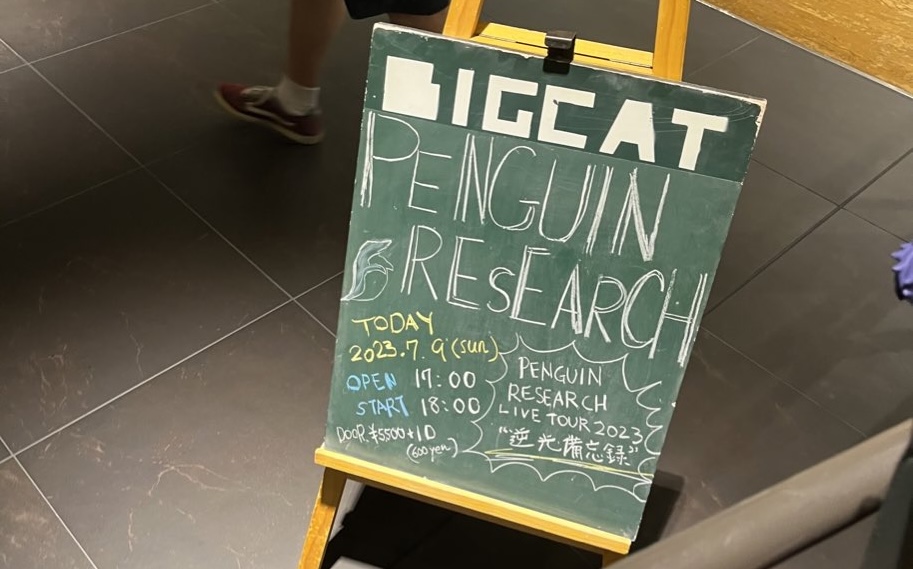 BIGCAT
PENGUIN
RESEARCH
TODAY
2023.7.9 (sun)
OPEN 17:00
START 18:00
DOOR. ¥5500+1D
(600yen)
PENGUIN
RESEARCH
LIVE TOUR 2023
"逆光備忘録"